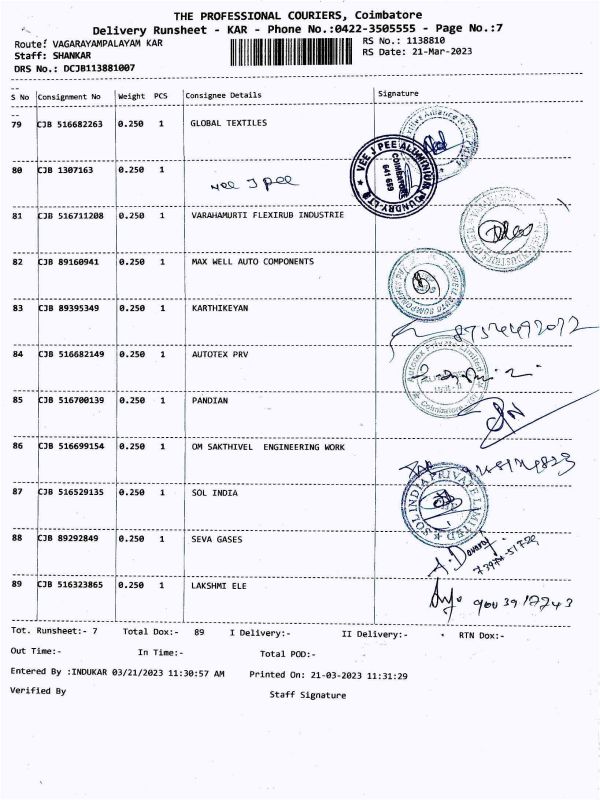 THE PROFESSIONAL COURIERS, Coimbatore
Delivery Runsheet - KAR - Phone No.:0422-3505555 - Page No.:7
Route: VAGARAYAMPALAYAM KAR
RS No.: 1138810
Staff: SHANKAR
RS Date: 21-Mar-2023
DRS No.: DCJB113881007
S No Consignment No Weight PCS Consignee Details Signature
79 CJB 516682263 0.250 1 GLOBAL TEXTILES
80 CJB 1307163 0.250 1 Vee J Pee
VEE J PEE ALUMINIUM FOUNDRY
COIMBATORE
641 659
81 CJB 516711208 0.250 1 VARAHAMURTI FLEXIRUB INDUSTRIE
82 CJB 89160941 0.250 1 MAX WELL AUTO COMPONENTS
83 CJB 89395349 0.250 1 KARTHIKEYAN
84 CJB 516682149 0.250 1 AUTOTEX PRV
Coimbatore
85 CJB 516700139 0.250 1 PANDIAN
86 CJB 516699154 0.250 1 OM SAKTHIVEL ENGINEERING WORK
87 CJB 516529135 0.250 1 SOL INDIA
SOL INDIA PRIVATE LIMITED
88 CJB 89292849 0.250 1 SEVA GASES
89 CJB 516323865 0.250 1 LAKSHMI ELE
Tot. Runsheet:- 7 Total Dox:- 89 I Delivery:- II Delivery:- RTN Dox:-
Out Time:- In Time:- Total POD:-
Entered By :INDUKAR 03/21/2023 11:30:57 AM Printed On: 21-03-2023 11:31:29
Verified By Staff Signature